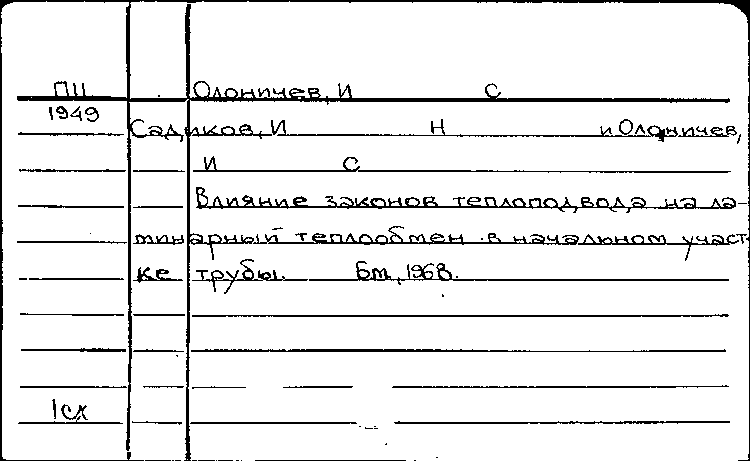 ПЦ Олоничев, И С
1949
Садиков, И Н и Олоничев,
И С
Влияние законов теплоподвода на ла-
минарный теплообмен в начальном участ-
ке трубы. Бм, 1968.
1сх